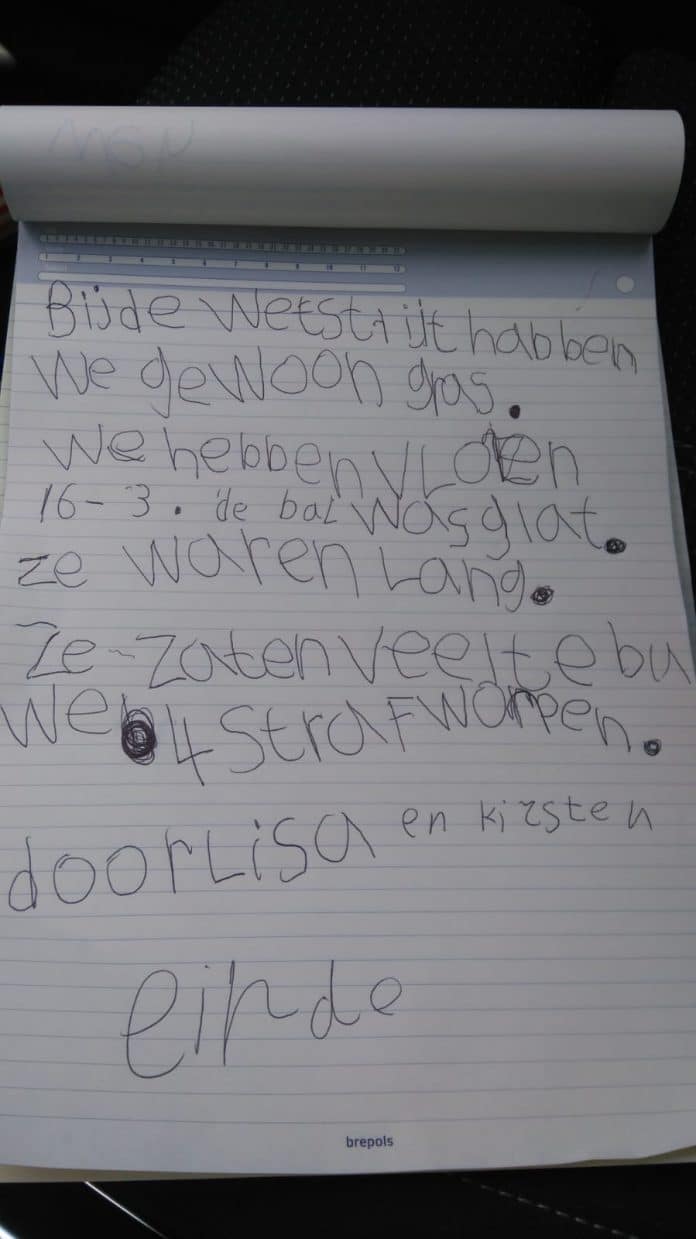 Bij de wetstrijt habben
we gewoon gras.
we hebben vloren
16-3. de bal was glat.
ze waren lang.
Ze-zaten veel te bu
we 4 strafworpen.
door Lisa en kirsten
einde
brepols